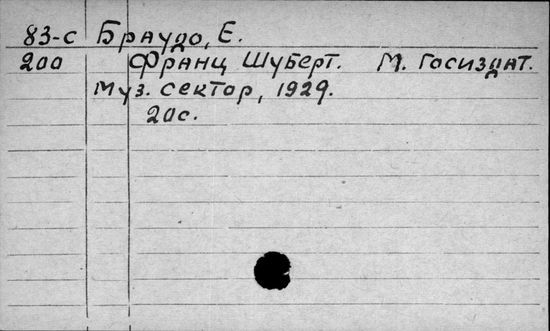 83-с Браудо, Е.
200 Франц Шуберт. М. Госиздат.
Муз. сектор, 1929.
20с.